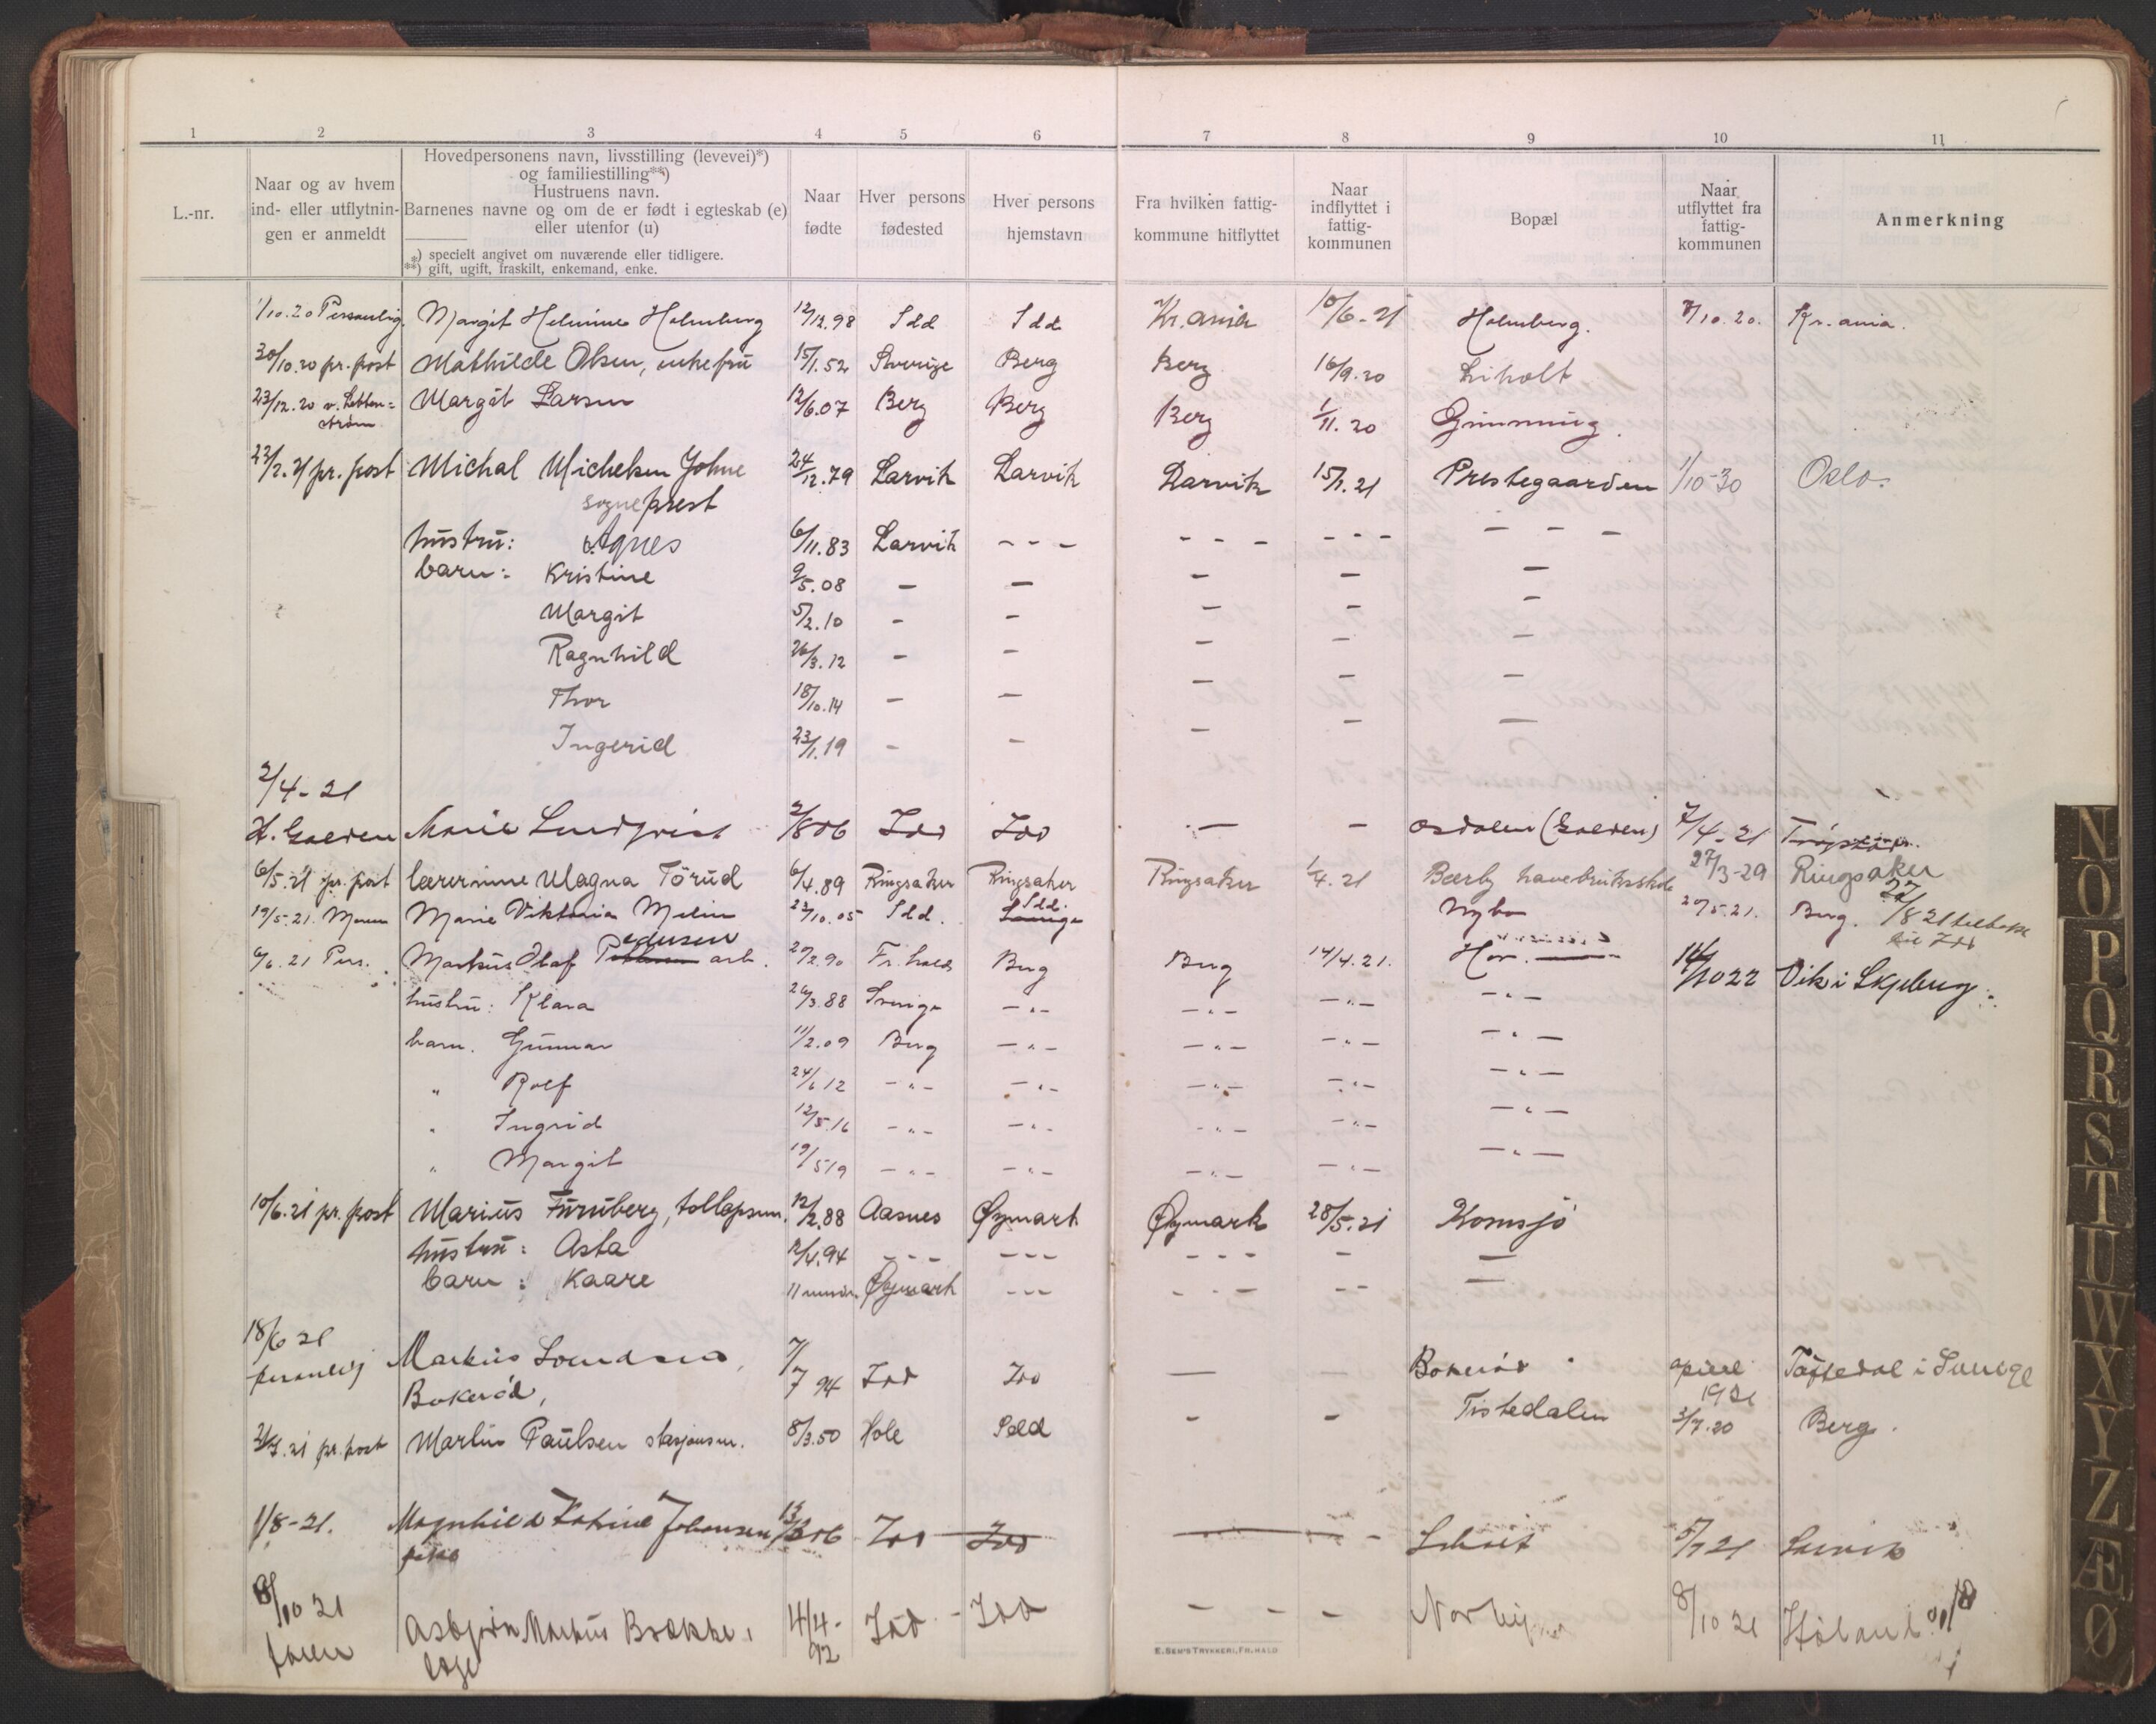 1 2 3 4 5 6 7 8 9 10 11
L.-nr.
Naar og av hvem
ind- eller utflytnin-
gen er anmeldt
Hovedpersonens navn, livsstilling (levevei)*)
og familiestilling**)
Hustruens navn.
Barnenes navne og om de er født i egteskab (e)
eller utenfor (u)
*) specielt angivet om nuværende eller tidligere.
**) gift, ugift, fraskilt, enkemand, enke.
Naar
fødte
Hver persons
fødested
Hver persons
hjemstavn
Fra hvilken fattig-
kommune hitflyttet
Naar
indflyttet i
fattig-
kommunen
Bopæl
Naar
utflyttet fra
fattig-
kommunen
Anmerkning
1/10.20 Personlig. Margit Helmine Holmberg 12/12.98 Idd Idd Kr.ania 10/6-21 Holmberg. 7/10.20. Kr.ania.
30/10.20 pr. post Mathilde Olsen, enkefru 15/1.52 Sverige Berg Berg 16/9.20 Liholt
23/12.20 v. Letten=
strøm Margit Larsen 12/6.07 Berg Berg Berg 1/11.20 Grimming.
23/2.21 pr. post Michal Michelsen Johne 24/12.79 Larvik Larvik Larvik 15/1.21 Prestegaarden 1/10-30 Oslo.
sogneprest
hustru: Agnes 6/11.83 Larvik - - - - - - - - - - - -
barn: Kristine 9/5.08 - - - - -
Margit 5/2.10 - - - - -
Ragnhild 26/3.12 - - - - -
Thor 18/10.14 - - - - -
Ingerid 23/1.19 - - - - -
2/4-21
H. Galden Marie Lundqvist 2/8 06 Idd Idd - - Osdalen (Galden) 7/4-21 Trøgstad.
6/5.21 pr. post lærerinne Magna Törud 6/4.89 Ringsaker Ringsaker Ringsaker 1/4.21 Bærby havebruksskole 27/3-29 Ringsaker
19/5-21. Moren Marie Viktoria Melin 23/10.05 Idd. Idd. Sverige Nybo 20/5.21. Berg. 27/8 21 tilbake
til Idd
6/6.21 Pers. Markus Olaf Pedersen arb. 27/2.90 Fr.hald Berg Berg 14/4.21. Hov. 14/10 22 Vik i Skjeberg
hustru: Klara 26/3.88 Sverige -"- -"- -"- -"-
barn. Gunnar 11/2.09 Berg -"- -"- -"- -"-
" Rolf 24/6 12 -"- -"- -"- -"- -"-
" Ingrid 12/5.16 -"- -"- -"- -"- -"-
" Margit 19/5 19 -"- -"- -"- -"- -"-
10/6.21 pr. post Marius Furuberg, tollopsm. 12/2.88 Aasnes Øymark Øymark 28/5.21 Kornsjø
hustru: Asta 12/4.94 - - - - - - - - - - -
barn: Kaare 11 mndr. Øymark - - - - - - - - -
18/6 21
personlig Markus 7/7 94 Idd Idd - - Bokerød april
1921 Tøftedal i Sverige
Bokerød,
2/7.21 pr. post Martin Paulsen stasjonsm. 8/3.50 Hole Idd - - Tistedalen 3/7.20 Berg.
1/8-21. Magnhild Katrine Johansen 13/3 06 Idd Idd - 5/7 21
pike
8/10 21
faren Asbjørn Markus Brække, 4/4-
92 Idd - Idd - - - 8/10 21 Høland
E. SEM'S TRYKKERI, FR.HALD
N
O
P
Q
R
S
T
U
W
X
Y
Z
Æ
Ø